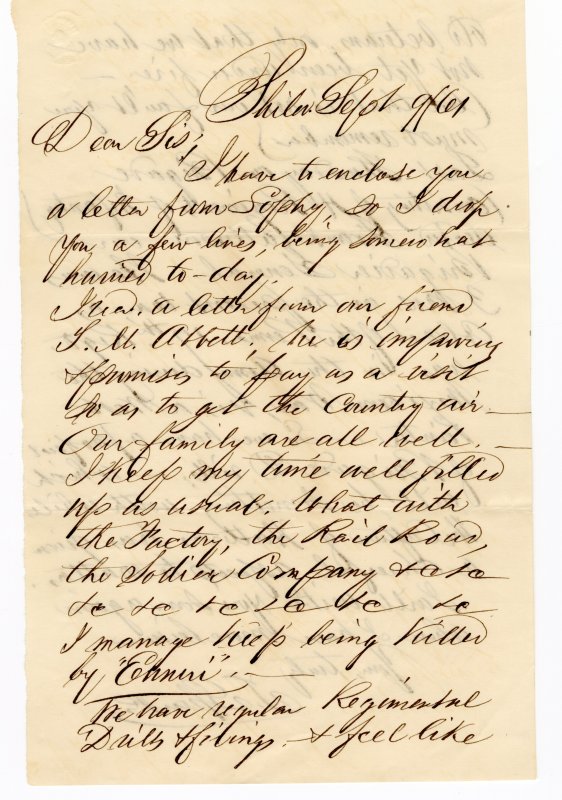 Phila. Sept 9/61
Dear Sis,
I have to enclose you
a letter from Sophy, so I drop
you a few lines, being somewhat
hurried to-day.
I recd. a letter from our friend
S. M. Abbett, he is improving
& promises to pay us a visit
so as to get the Country air —
Our family are all well. —
I keep my time well filled
up as usual. What with
the Factory, the Rail Road,
the Sodier Company &c &c
&c &c &c &c &c &c
I manage keep being killed
by "Ennui". —
We have regular Regimental
Drills & firings. & feel like